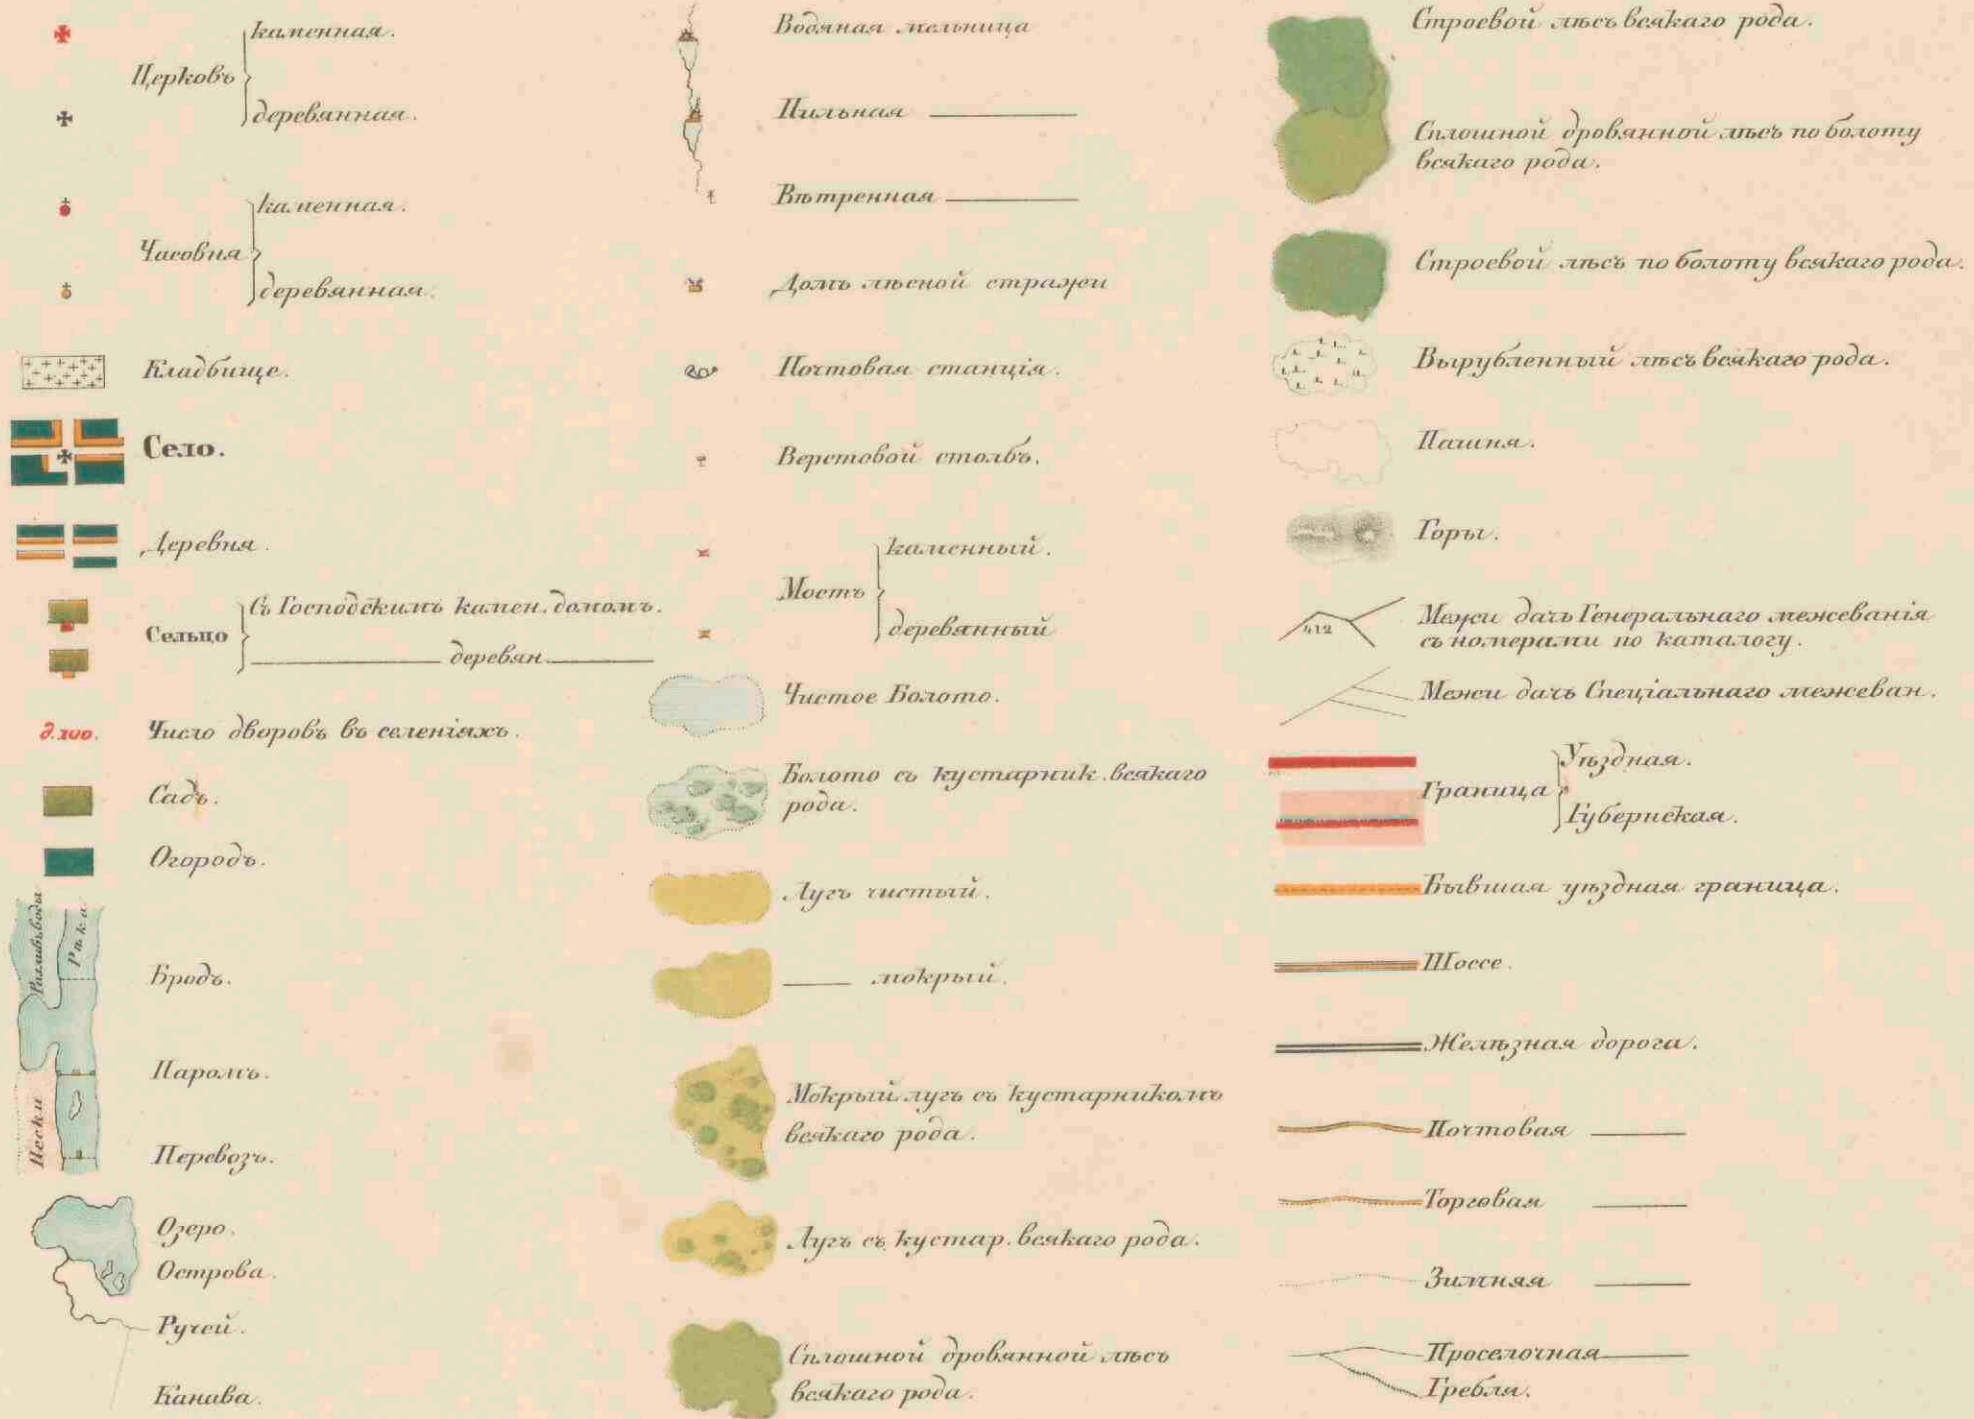 каменная.
Церковъ
деревянная.
каменная.
Часовня
деревянная.
Кладбище.
Село.
Деревня.
Съ Господскимъ камен. домомъ.
Сельцо
деревян.
д. 100.
Число дворовъ въ селеніяхъ.
Садъ.
Огородъ.
Разливъ воды
Рѣка
Бродъ.
Паромъ.
Пески
Перевозъ.
Озеро.
Острова.
Ручей.
Канава.
Водяная мельница
Пильная
Вѣтренная
Домъ лѣсной стражи
Почтовая станція.
Верстовой столбъ.
каменный.
Мостъ
деревянный
Чистое Болото.
Болото съ кустарник. всякаго
рода.
Лугъ чистый.
мокрый.
Мокрый лугъ съ кустарникомъ
всякаго рода.
Лугъ съ кустар. всякаго рода.
Сплошной дровянной лѣсъ
всякаго рода.
Строевой лѣсъ всякаго рода.
Сплошной дровянной лѣсъ по болоту
всякаго рода.
Строевой лѣсъ по болоту всякаго рода.
Вырубленный лѣсъ всякаго рода.
Пашня.
Горы.
412
Межи дачъ Генеральнаго межеванія
съ номерами по каталогу.
Межи дачъ Спеціальнаго межеван.
Уѣздная.
Граница
Губернская.
Бывшая уѣздная граница.
Шоссе.
Желѣзная дорога.
Почтовая
Торговая
Зимняя
Проселочная
Гребля.